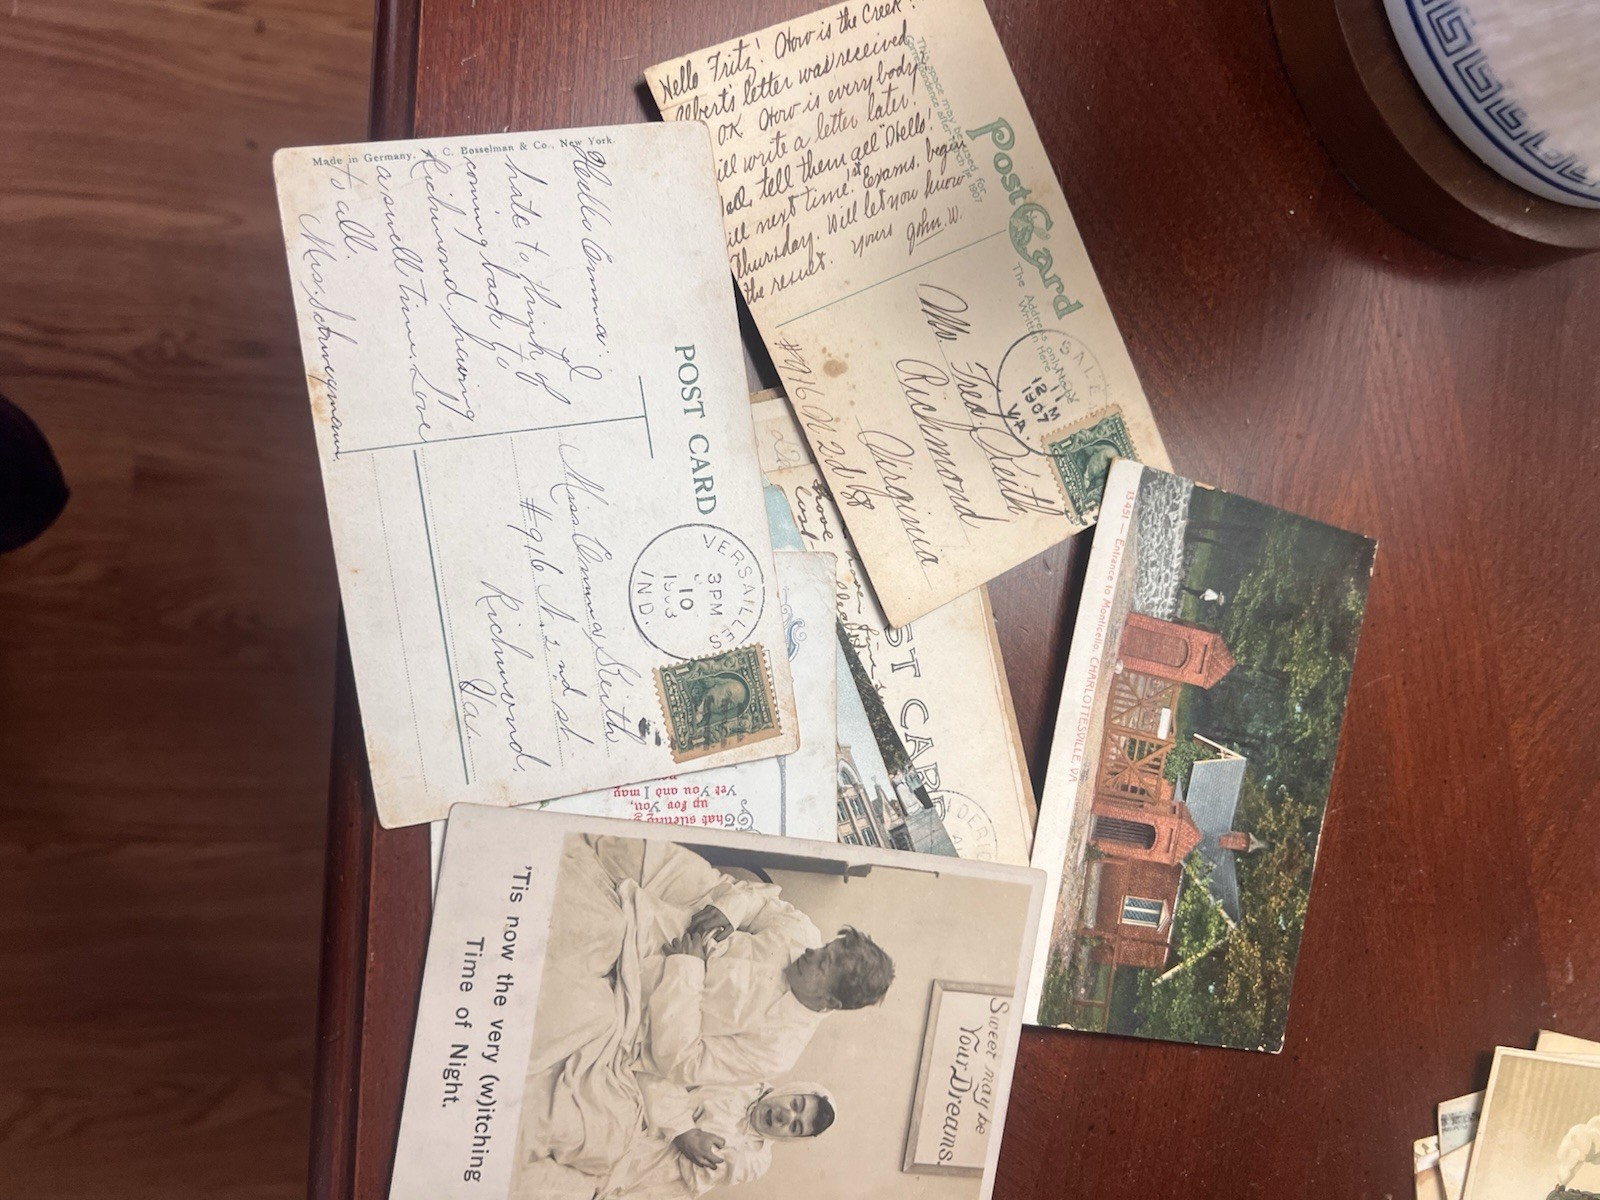 Hello Fritz! How is the Creek?
Albert's letter was received
OK. How is everybody
write a letter later!
tell them all "Hello!"
next time. 1st Exams. begin
Thursday. Will let you know
the result. Yours John. W.
This space may be used for
correspondence after March 1st 1907
Post Card
The Address only to be
Written Here
SALE
12 M
1907
VA.
Mr. Fred. Reith
Richmond
Virginia
#916 N 2d St
Made in Germany. C. Bosselman & Co., New York.
POST CARD
Hello Emma: I
hate to think of
coming back to
Richmond, having
a swell time. Love
to all.
Mrs. Schwegmann
VERSAILLES
3 PM
10
IND.
Miss Emma Reith
#916 N. 2nd St.
Richmond,
Va.
ST CARD
DERIC
that silently
up for You,
Yet You and I may
13451 — Entrance to Monticello, CHARLOTTESVILLE, VA
Sweet may be
Your Dreams.
'Tis now the very (w)itching
Time of Night.